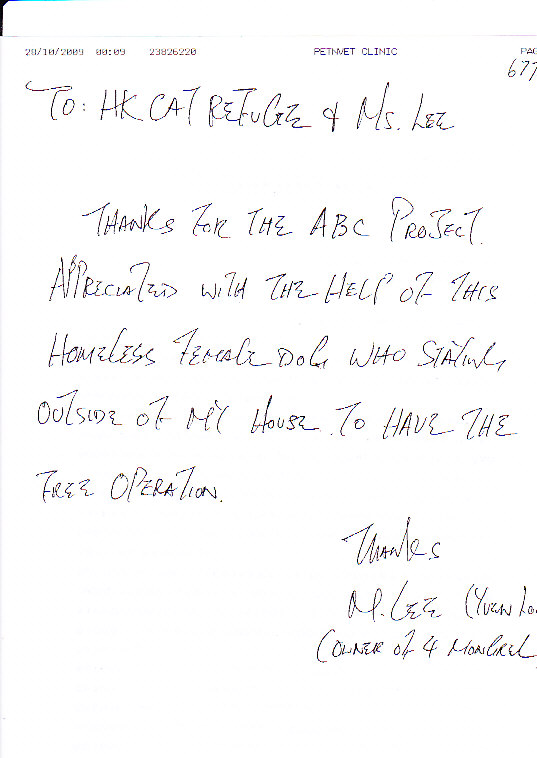 28/10/2009 00:09 23826220 PETNVET CLINIC PAG
677
TO: HK CAT REFUGEE & MS. LEE
THANKS FOR THE ABC PROJECT.
APPRECIATED WITH THE HELP OF THIS
HOMELESS FEMALE DOG WHO STAYING
OUTSIDE OF MY HOUSE TO HAVE THE
FREE OPERATION.
THANKS
M. LEE (YUEN LO
(OWNER OF 4 MONGREL